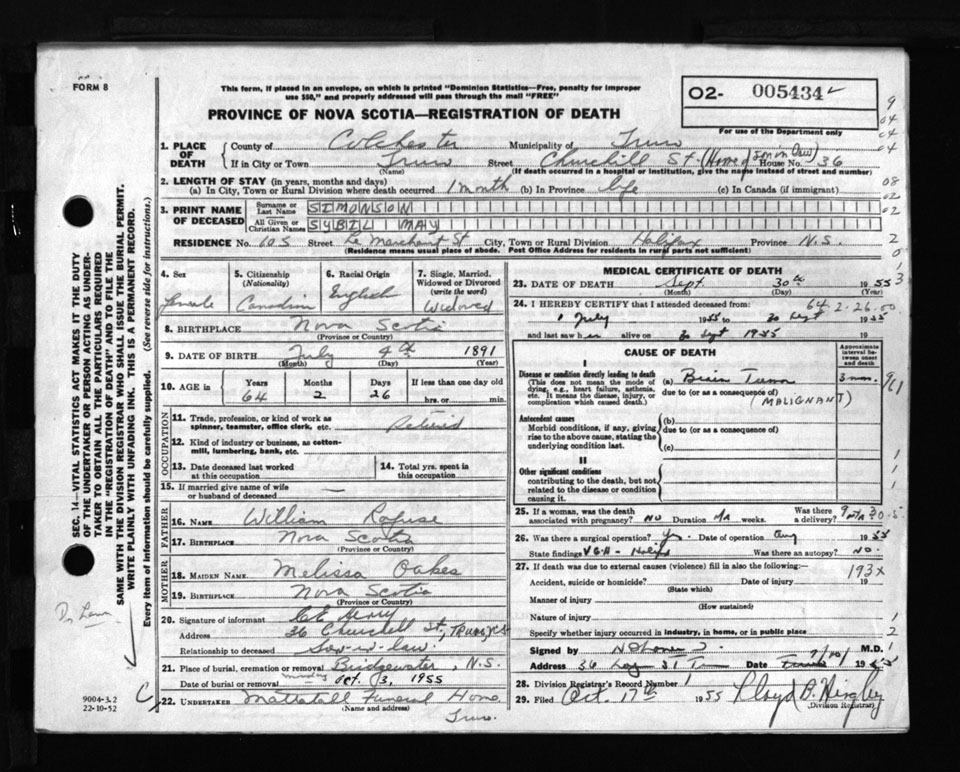 FORM 8
This form, if placed in an envelope, on which is printed "Dominion Statistics—Free, penalty for improper
use $50," and properly addressed will pass through the mail "FREE"
O2- 005434
For use of the Department only
PROVINCE OF NOVA SCOTIA—REGISTRATION OF DEATH
1. PLACE OF DEATH { County of Colchester Municipality of Truro
If in City or Town Truro Street Churchill St. (Home of Son in Law) House No. 36
(Name) (If death occurred in a hospital or institution, give the name instead of street and number)
2. LENGTH OF STAY (in years, months and days)
(a) In City, Town or Rural Division where death occurred 1 month (b) In Province life (c) In Canada (if immigrant)
3. PRINT NAME OF DECEASED { Surname or Last Name SIMONSON
All Given or Christian Names SYBIL MAY
RESIDENCE No. 605 Street Le Marchant St City, Town or Rural Division Halifax Province N.S.
(Residence means usual place of abode. Post Office Address for residents in rural parts not sufficient)
4. Sex Female
5. Citizenship (Nationality) Canadian
6. Racial Origin English
7. Single, Married, Widowed or Divorced (write the word) Widowed
8. BIRTHPLACE Nova Scotia
(Province or Country)
9. DATE OF BIRTH July 4th 1891
(Month) (Day) (Year)
10. AGE in { Years 64 Months 2 Days 26 If less than one day old hrs. or min.
OCCUPATION
11. Trade, profession, or kind of work as spinner, teamster, office clerk, etc. Retired
12. Kind of industry or business, as cotton-mill, lumbering, bank, etc.
13. Date deceased last worked at this occupation
14. Total yrs. spent in this occupation
15. If married give name of wife or husband of deceased —
FATHER
16. NAME William Rafuse
17. BIRTHPLACE Nova Scotia
(Province or Country)
MOTHER
18. MAIDEN NAME Melissa Oakes
19. BIRTHPLACE Nova Scotia
(Province or Country)
20. Signature of informant Henry
Address 36 Churchill St., Truro, N.S.
Relationship to deceased Son-in-law
21. Place of burial, cremation or removal Bridgewater, N.S.
Date of burial or removal Monday Oct. 3, 1955
22. UNDERTAKER Mattatall Funeral Home
(Name and address)
Truro.
MEDICAL CERTIFICATE OF DEATH
23. DATE OF DEATH Sept. 30th 1955
(Month) (Day) (Year)
24. I HEREBY CERTIFY that I attended deceased from: 64.2-26.00
1 July 1955 to 30 Sept 1955
and last saw her alive on 30 Sept 1955
CAUSE OF DEATH
Approximate interval between onset and death
I
Disease or condition directly leading to death
(This does not mean the mode of dying, e.g., heart failure, asthenia, etc. It means the disease, injury, or complication which caused death.)
(a) Brain Tumor 3 mos.
due to (or as a consequence of)
(MALIGNANT)
Antecedent causes
Morbid conditions, if any, giving rise to the above cause, stating the underlying condition last.
(b)
due to (or as a consequence of)
(c)
II
Other significant conditions
contributing to the death, but not related to the disease or condition causing it.
25. If a woman, was the death associated with pregnancy? NO Duration NA weeks. Was there a delivery?
26. Was there a surgical operation? Yes. Date of operation Aug 1955
State findings VGH - Halifax Was there an autopsy? NO.
27. If death was due to external causes (violence) fill in also the following:— 193X
Accident, suicide or homicide? Date of injury 19
(State which)
Manner of injury
(How sustained)
Nature of injury
Specify whether injury occurred in industry, in home, or in public place
Signed by M.D.
Address 36 Date
28. Division Registrar's Record Number 1
29. Filed Oct. 17th 1955 Lloyd
(Division Registrar)
SEC. 14—VITAL STATISTICS ACT MAKES IT THE DUTY
OF THE UNDERTAKER OR PERSON ACTING AS UNDER-
TAKER TO OBTAIN ALL THE PARTICULARS REQUIRED
IN THE "REGISTRATION OF DEATH" AND TO FILE THE
SAME WITH THE DIVISION REGISTRAR WHO SHALL ISSUE THE BURIAL PERMIT.
WRITE PLAINLY WITH UNFADING INK. THIS IS A PERMANENT RECORD.
Every item of information should be carefully supplied. (See reverse side for instructions.)
9004-3.2
22-10-52